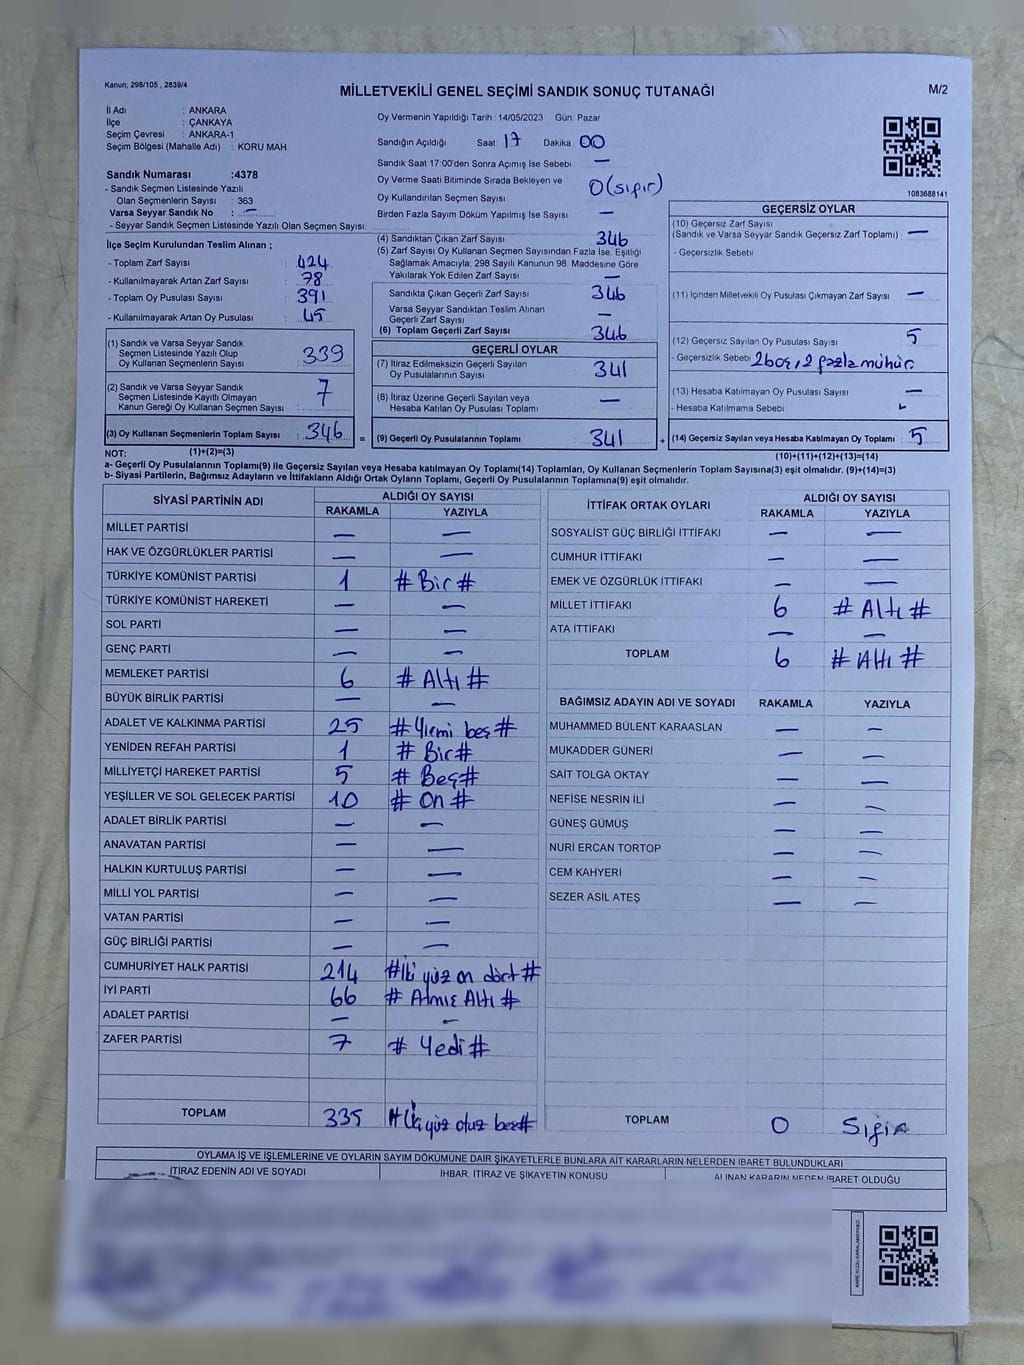 Kanun; 298/105 , 2839/4
MİLLETVEKİLİ GENEL SEÇİMİ SANDIK SONUÇ TUTANAĞI
M/2
İl Adı : ANKARA
İlçe : ÇANKAYA
Seçim Çevresi : ANKARA-1
Seçim Bölgesi (Mahalle Adı) : KORU MAH.
Sandık Numarası :4378
- Sandık Seçmen Listesinde Yazılı
Olan Seçmenlerin Sayısı : 363
Varsa Seyyar Sandık No : —
- Seyyar Sandık Seçmen Listesinde Yazılı Olan Seçmen Sayısı:
İlçe Seçim Kurulundan Teslim Alınan ;
- Toplam Zarf Sayısı : 424
- Kullanılmayarak Artan Zarf Sayısı : 78
- Toplam Oy Pusulası Sayısı : 391
- Kullanılmayarak Artan Oy Pusulası : 45
(1) Sandık ve Varsa Seyyar Sandık
Seçmen Listesinde Yazılı Olup
Oy Kullanan Seçmenlerin Sayısı : 339
(2) Sandık ve Varsa Seyyar Sandık
Seçmen Listesinde Kayıtlı Olmayan
Kanun Gereği Oy Kullanan Seçmen Sayısı : 7
(3) Oy Kullanan Seçmenlerin Toplam Sayısı : 346
Oy Vermenin Yapıldığı Tarih : 14/05/2023 Gün: Pazar
Sandığın Açıldığı Saat: 17 Dakika 00
Sandık Saat 17:00'den Sonra Açılmış İse Sebebi —
Oy Verme Saati Bitiminde Sırada Bekleyen ve
Oy Kullandırılan Seçmen Sayısı 0(sıfır)
Birden Fazla Sayım Döküm Yapılmış İse Sayısı : —
(4) Sandıktan Çıkan Zarf Sayısı 346
(5) Zarf Sayısı Oy Kullanan Seçmen Sayısından Fazla İse, Eşitliği
Sağlamak Amacıyla; 298 Sayılı Kanunun 98. Maddesine Göre
Yakılarak Yok Edilen Zarf Sayısı —
Sandıkta Çıkan Geçerli Zarf Sayısı 346
Varsa Seyyar Sandıktan Teslim Alınan
Geçerli Zarf Sayısı —
(6) Toplam Geçerli Zarf Sayısı 346
GEÇERLİ OYLAR
(7) İtiraz Edilmeksizin Geçerli Sayılan
Oy Pusulalarının Sayısı 341
(8) İtiraz Üzerine Geçerli Sayılan veya
Hesaba Katılan Oy Pusulası Toplamı —
= (9) Geçerli Oy Pusulalarının Toplamı 341 +
1083688141
GEÇERSİZ OYLAR
(10) Geçersiz Zarf Sayısı
(Sandık ve Varsa Seyyar Sandık Geçersiz Zarf Toplamı) —
- Geçersizlik Sebebi :
(11) İçinden Milletvekili Oy Pusulası Çıkmayan Zarf Sayısı —
(12) Geçersiz Sayılan Oy Pusulası Sayısı : 5
- Geçersizlik Sebebi 2boş,2 fazla mühür
(13) Hesaba Katılmayan Oy Pusulası Sayısı : —
- Hesaba Katılmama Sebebi :
(14) Geçersiz Sayılan veya Hesaba Katılmayan Oy Toplamı : 5
NOT: (1)+(2)=(3)
(10)+(11)+(12)+(13)=(14)
a- Geçerli Oy Pusulalarının Toplamı(9) ile Geçersiz Sayılan veya Hesaba katılmayan Oy Toplamı(14) Toplamları, Oy Kullanan Seçmenlerin Toplam Sayısına(3) eşit olmalıdır. (9)+(14)=(3)
b- Siyasi Partilerin, Bağımsız Adayların ve İttifakların Aldığı Ortak Oyların Toplamı, Geçerli Oy Pusulalarının Toplamına(9) eşit olmalıdır.
SİYASİ PARTİNİN ADI ALDIĞI OY SAYISI
RAKAMLA YAZIYLA
MİLLET PARTİSİ — —
HAK VE ÖZGÜRLÜKLER PARTİSİ — —
TÜRKİYE KOMÜNİST PARTİSİ 1 # Bir #
TÜRKİYE KOMÜNİST HAREKETİ — —
SOL PARTİ — —
GENÇ PARTİ — —
MEMLEKET PARTİSİ 6 # Altı #
BÜYÜK BİRLİK PARTİSİ — —
ADALET VE KALKINMA PARTİSİ 25 # Yirmi beş #
YENİDEN REFAH PARTİSİ 1 # Bir #
MİLLİYETÇİ HAREKET PARTİSİ 5 # Beş #
YEŞİLLER VE SOL GELECEK PARTİSİ 10 # On #
ADALET BİRLİK PARTİSİ — —
ANAVATAN PARTİSİ — —
HALKIN KURTULUŞ PARTİSİ — —
MİLLİ YOL PARTİSİ — —
VATAN PARTİSİ — —
GÜÇ BİRLİĞİ PARTİSİ — —
CUMHURİYET HALK PARTİSİ 214 # İki yüz on dört #
İYİ PARTİ 66 # Atmış Altı #
ADALET PARTİSİ — —
ZAFER PARTİSİ 7 # Yedi #
TOPLAM 335 # Üç yüz otuz beş #
İTTİFAK ORTAK OYLARI ALDIĞI OY SAYISI
RAKAMLA YAZIYLA
SOSYALİST GÜÇ BİRLİĞİ İTTİFAKI — —
CUMHUR İTTİFAKI — —
EMEK VE ÖZGÜRLÜK İTTİFAKI — —
MİLLET İTTİFAKI 6 # Altı #
ATA İTTİFAKI — —
TOPLAM 6 # Altı #
BAĞIMSIZ ADAYIN ADI VE SOYADI RAKAMLA YAZIYLA
MUHAMMED BÜLENT KARAASLAN — —
MUKADDER GÜNERİ — —
SAİT TOLGA OKTAY — —
NEFİSE NESRİN İLİ — —
GÜNEŞ GÜMÜŞ — —
NURİ ERCAN TORTOP — —
CEM KAHYERİ — —
SEZER ASİL ATEŞ — —
TOPLAM 0 Sıfır
OYLAMA İŞ VE İŞLEMLERİNE VE OYLARIN SAYIM DÖKÜMÜNE DAİR ŞİKAYETLERLE BUNLARA AİT KARARLARIN NELERDEN İBARET BULUNDUKLARI
İTİRAZ EDENİN ADI VE SOYADI İHBAR, İTİRAZ VE ŞİKAYETİN KONUSU ALINAN KARARIN NEDEN İBARET OLDUĞU